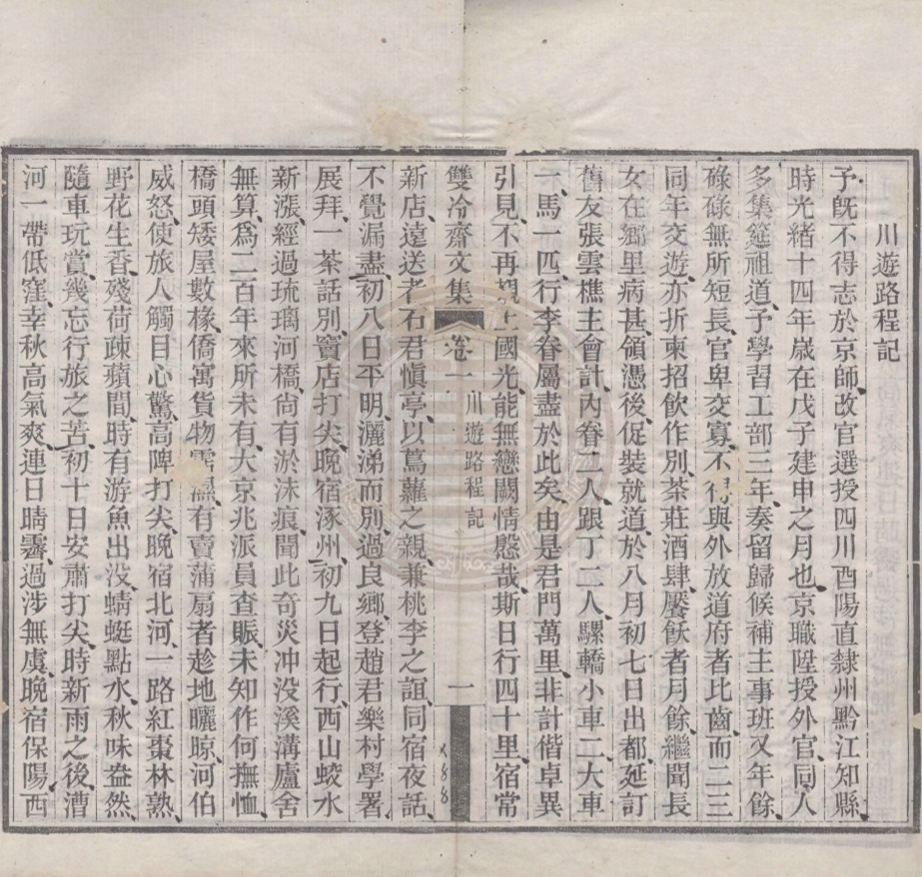 川遊路程記
予旣不得志於京師、改官選授四川酉陽直隸州黔江知縣、
時光緒十四年歲在戊子建申之月也、京職陞授外官、同人
多集筵祖道、予學習工部三年、奏留歸候補主事班又年餘、
碌碌無所短長、官卑交寡、不得與外放道府者比齒、而二三
同年交遊、亦折柬招飲作別、茶莊酒肆、饜飫者月餘、繼聞長
女在鄉里病甚、領憑後、促裝就道、於八月初七日出都、延訂
舊友張雲樵主會計、內眷二人、跟丁二人、騾轎小車二、大車
一、馬一匹、行李眷屬盡於此矣、由是君門萬里、非計偕卓異
引見、不再上國光、能無戀闕情慇哉、斯日行四十里、宿常
雙冷齋文集 卷一 川遊路程記 一
新店、遠送者石君愼亭、以蔦蘿之親、兼桃李之誼、同宿夜話、
不覺漏盡、初八日平明、灑涕而別、過良鄉、登趙君樂村學署、
展拜、一茶話別、竇店打尖、晚宿涿州、初九日起行、西山蛟水
新漲、經過琉璃河橋、尙有淤沫痕、聞此奇災、沖没溪溝廬舍
無算、爲二百年來所未有、大京兆派員查賑、未知作何撫恤、
橋頭矮屋數椽、僑寓貨物、有賣蒲扇者、趁地曬晾、河伯
威怒、使旅人觸目心驚、高碑打尖、晚宿北河、一路紅棗林熟、
野花生香、殘荷疎蘋間、時有游魚出没、蜻蜓點水、秋味盎然、
隨車玩賞、幾忘行旅之苦、初十日安肅打尖、時新雨之後、漕
河一帶低窪、幸秋高氣爽、連日晴霽、過涉無虞、晚宿保陽、西